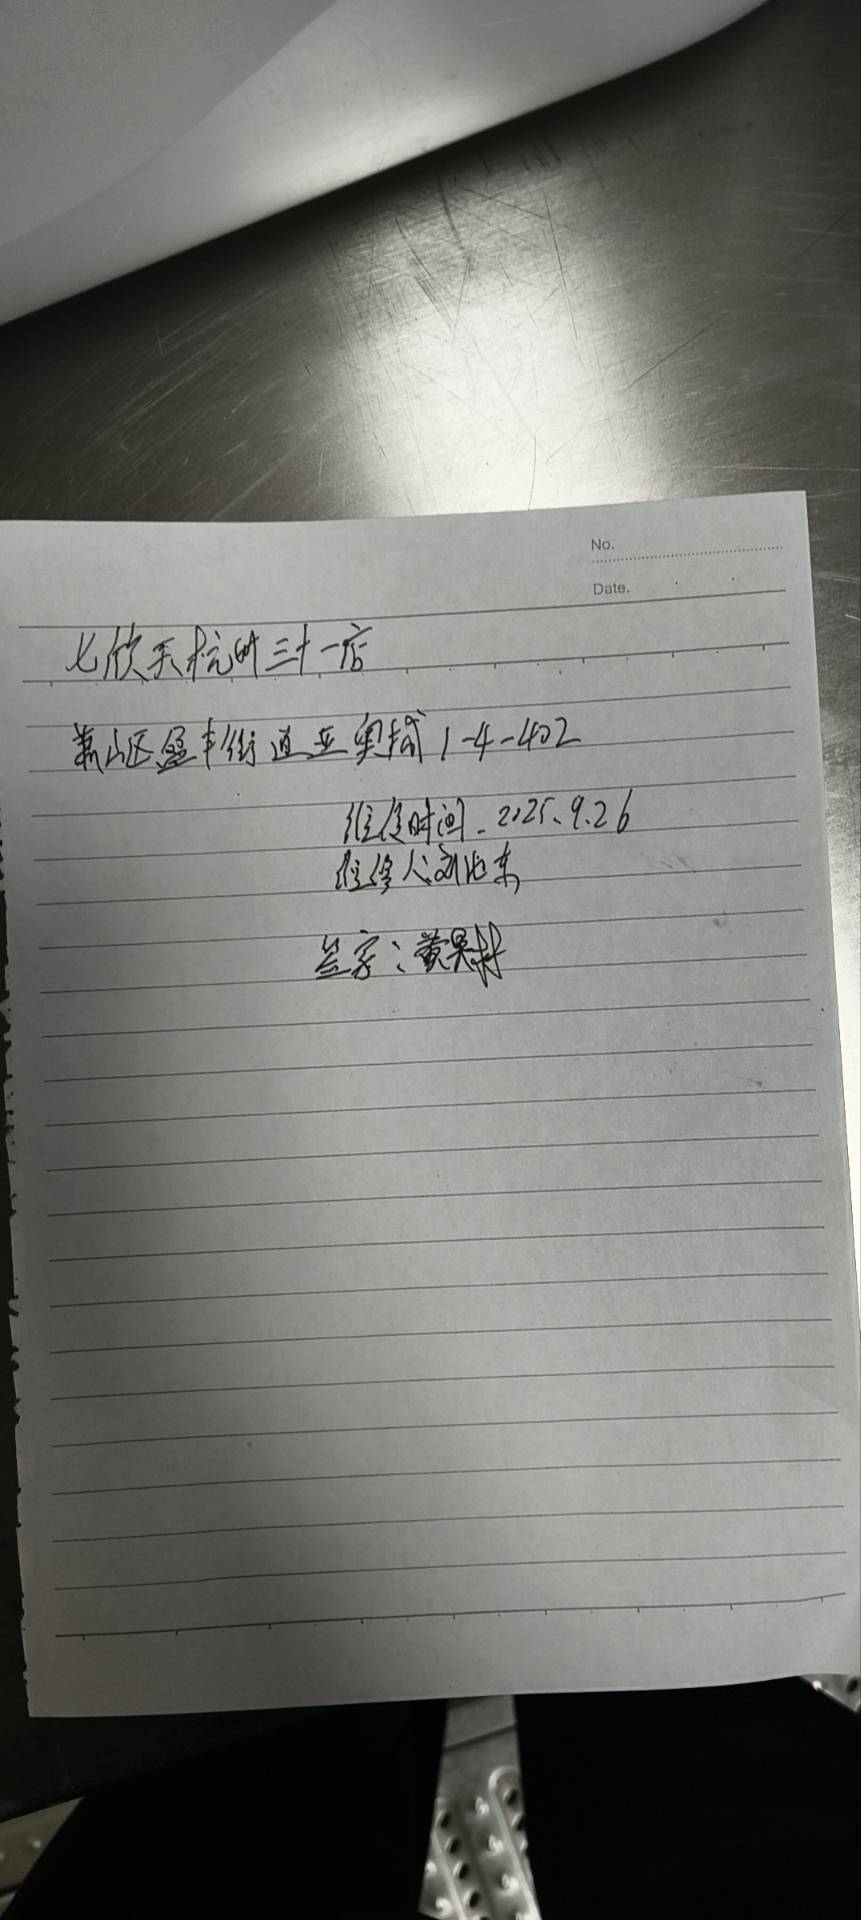 No.
Date.
七欣天杭州三十一店
萧山区盈丰街道亚奥城1-4-402
维修时间.2025.9.26
维修人:刘
签字:黄